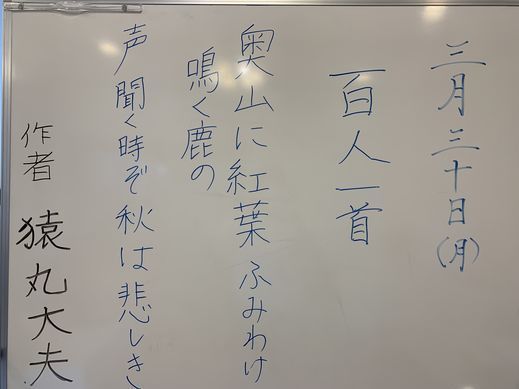 三月三十日(月)
百人一首
奥山に紅葉ふみわけ
鳴く鹿の
声聞く時ぞ秋は悲しき
作者 猿丸大夫